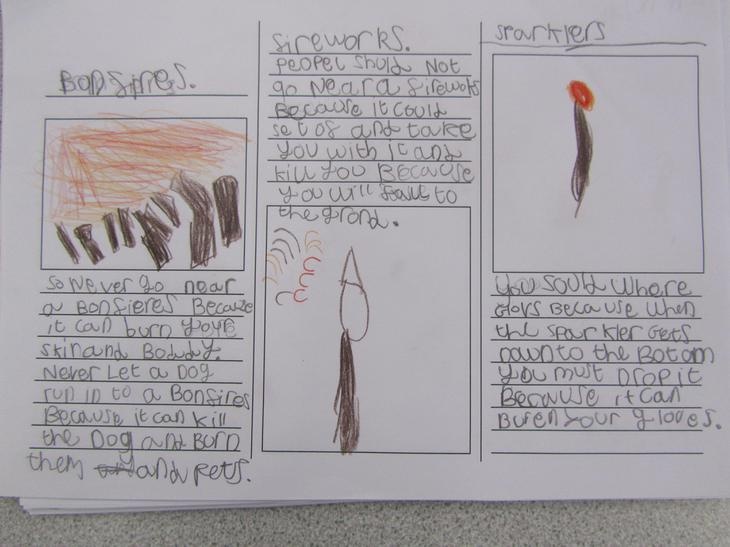 Bonfires.
so Never go near
a Bonfieres Because
it can burn youre
skin and Bodudy.
Never Let a Dog
run in to a Bonfires
Because it can kill
the Dog and Burn
them and Pets.
fireworks.
peopel should Not
go Near a firework
Because it could
set of and take
you with it and
kill you Because
you will fall to
the grond.
sparklers
you sould where
glovs Because when
the sparkler Gets
down to the Botom
you must Drop it
Because it can
buren your gloves.